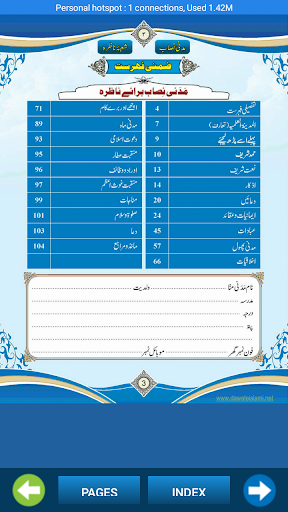 Personal hotspot : 1 connections, Used 1.42M
مدنی نصاب ۳ شعبۂ ناظرہ
ضمنی فہرست
مدنی نصاب برائے ناظرہ
تفصیلی فہرست 4 اچھے اور برے کام 71
المدینۃ العلمیۃ (تعارف) 7 مدنی ماہ 89
پہلے اسے پڑھ لیجئے 9 دعوت اسلامی 93
حمد شریف 10 منقبت عطار 95
نعت شریف 13 اوراد و وظائف 96
اذکار 14 منقبت غوث اعظم 97
دعائیں 20 مناجات 99
ایمانیات و عقائد 24 صلوٰۃ و سلام 101
عبادات 45 دعا 103
مدنی پھول 57 ماخذ و مراجع 104
اخلاقیات 66
نام مدنی منا ولدیت
مدرسہ
درجہ
پتا
فون نمبر گھر موبائل نمبر
3
www.dawateislami.net
PAGES INDEX